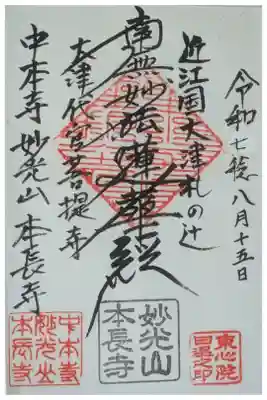 令和七稔八月十五日
近江国大津札の辻
南無妙法蓮華経
大津代官菩提寺
中本寺 妙光山 本長寺
妙光山
本長寺
中本寺
妙光山
本長寺
東心院